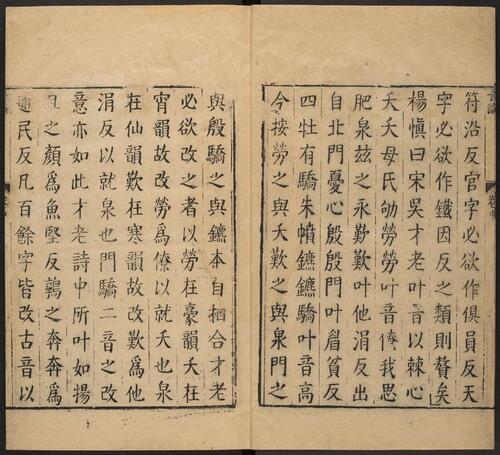 符沿反官字必欲作俱員反天
字必欲作鐵因反之類則贅矣
楊慎曰宋吳才老叶音以棘心
夭夭母氏劬勞勞叶音僚我思
肥泉玆之永歎歎叶他涓反出
自北門憂心殷殷門叶眉貧反
四牡有驕朱幩鑣鑣驕叶音高
今按勞之與夭歎之與泉門之
與殷驕之與鑣本自相合才老
必欲改之者以勞在豪韻夭在
宵韻故改勞爲僚以就夭也泉
在仙韻歎在寒韻故改歎爲他
涓反以就泉也門驕二音之改
意亦如此才老詩中所叶如揚
且之顏爲魚堅反鶉之奔奔爲
逋民反凡百餘字皆改古音以